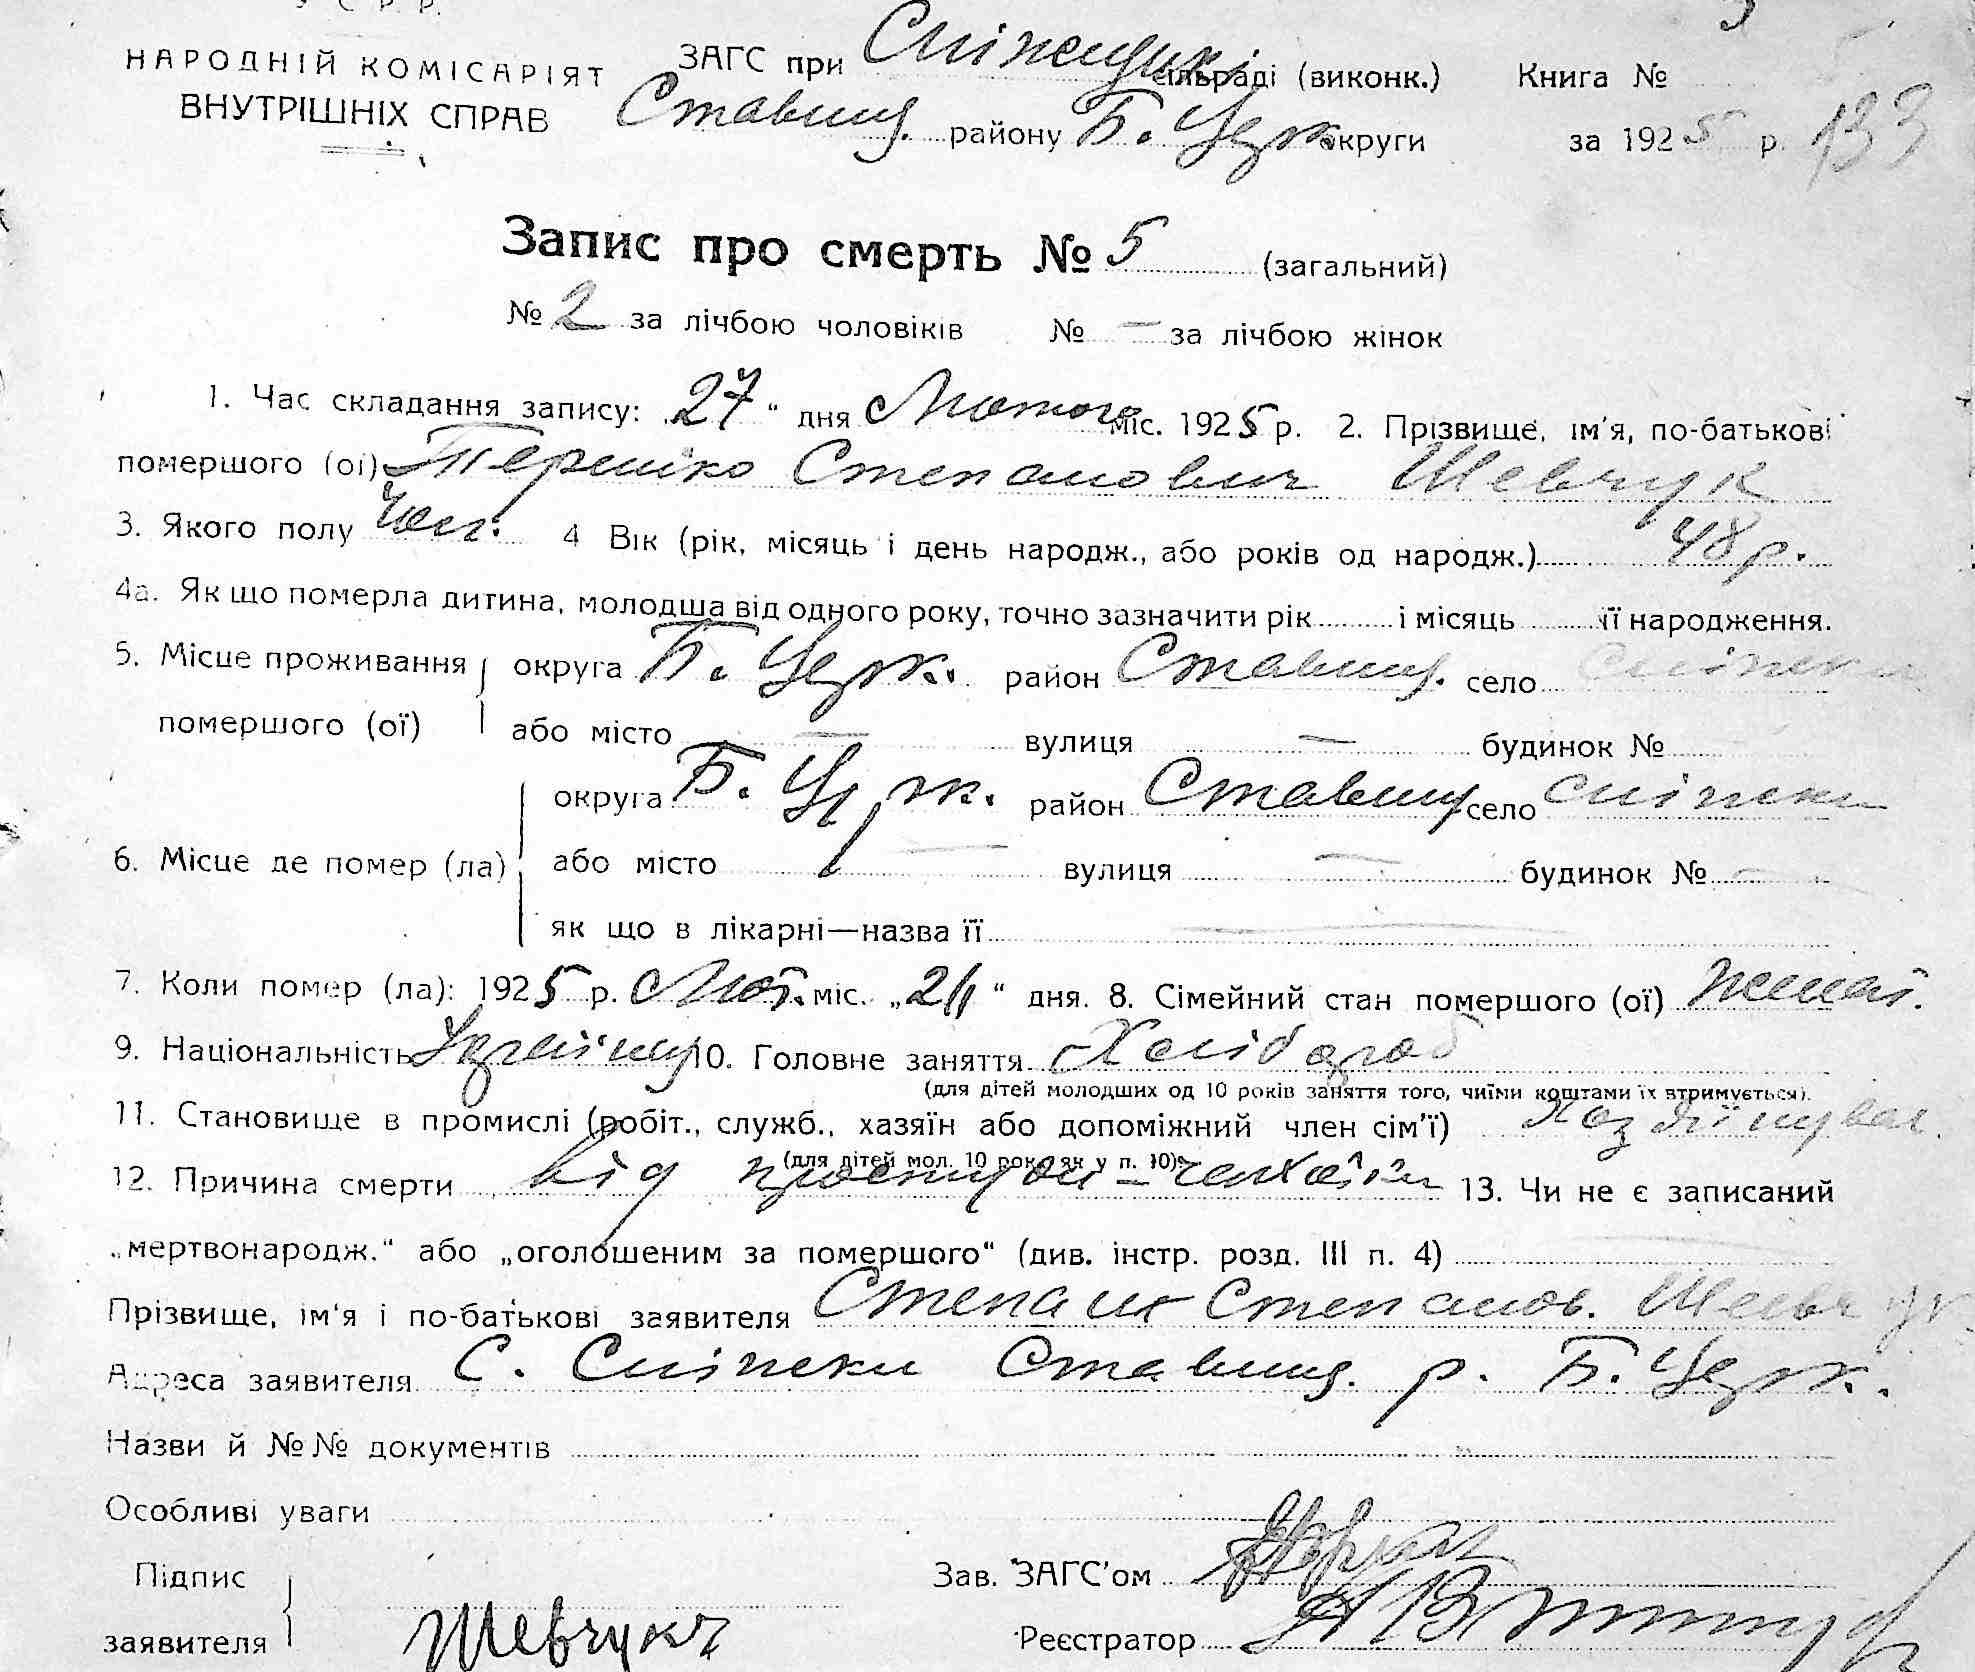 У С Р. Р.
НАРОДНІЙ КОМІСАРІЯТ ЗАГС при сільраді (виконк.) Книга №
ВНУТРІШНІХ СПРАВ Ставищ. району Б. Церк. округи за 1925 р. 133
Запис про смерть № 5 (загальний)
№ 2 за лічбою чоловіків № — за лічбою жінок
1. Час складання запису: „27“ дня Лютого міс. 1925 р. 2. Прізвище, ім'я, по-батькові
помершого (ої) Терешко Степанович Шевчук
3. Якого полу Чол. 4 Вік (рік, місяць і день народж., або років од народж.) 48 р.
4а. Як що померла дитина, молодша від одного року, точно зазначити рік і місяць її народження.
5. Місце проживання округа Б. Церк. район Ставищ. село Сніжки
помершого (ої) або місто — вулиця — будинок №
округа Б. Церк. район Ставищ село Сніжки
6. Місце де помер (ла) або місто — вулиця — будинок № —
як що в лікарні—назва її —
7. Коли помер (ла): 1925 р. Лют. міс. „24“ дня. 8. Сімейний стан помершого (ої) Женат.
9. Національність Україне 10. Головне заняття Хлібороб
(для дітей молодших од 10 років заняття того, чиїми коштами їх втримується).
11. Становище в промислі (робіт., служб., хазяїн або допоміжний член сім'ї)
(для дітей мол. 10 рок. як у п. 10)
12. Причина смерти від простуди – 13. Чи не є записаний
„мертвонародж.“ або „оголошеним за помершого“ (див. інстр. розд. III п. 4) —
Прізвище, ім'я і по-батькові заявителя Степан Степанов. Шевчук
Адреса заявителя С. Сніжки Ставищ. р. Б. Церк.
Назви й №№ документів
Особливі уваги
Підпис Зав. ЗАГС'ом
заявителя Шевчукъ Реєстратор